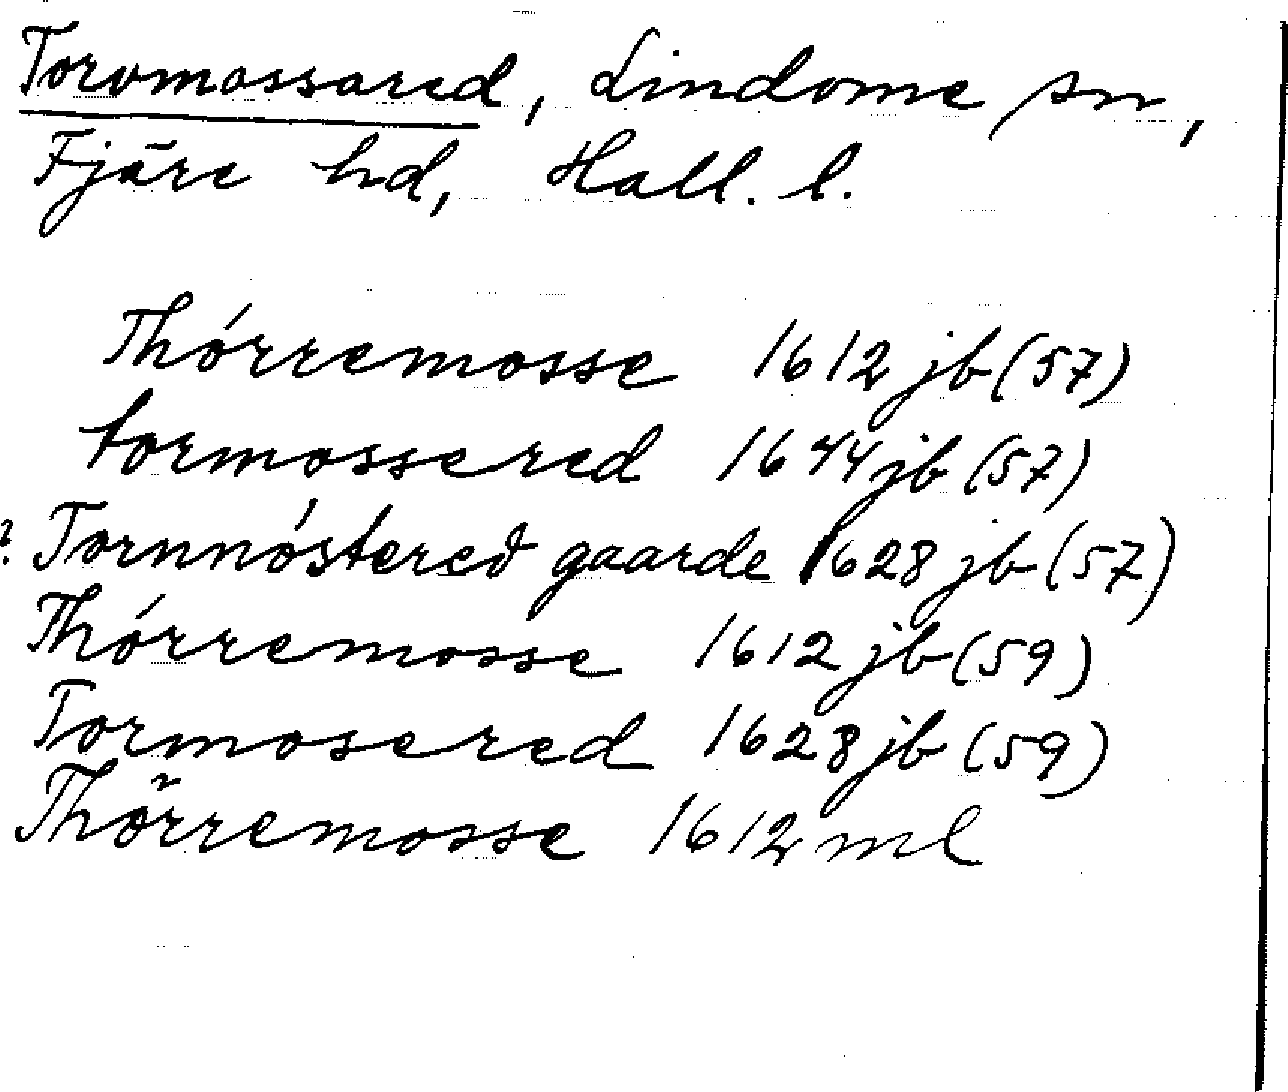 Torvmossared, Lindome sn,
Fjäre hd, Hall. l.
Thórremosse 1612 jb (57)
tormossered 1644 jb (57)
? Tornnóstered gaarde 1628 jb (57)
Thórremosse 1612 jb (59)
Tormosered 1628 jb (59)
Thörremosse 1612 ml